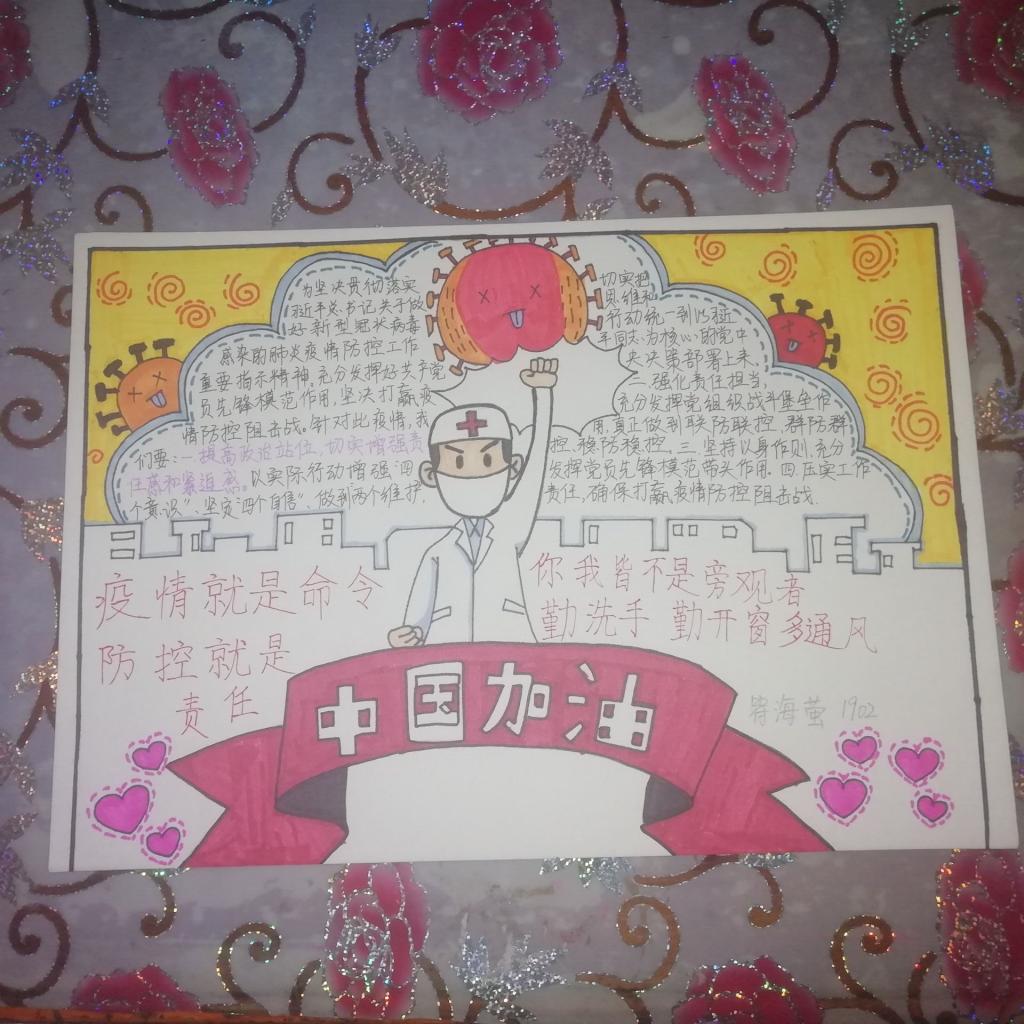 为坚决贯彻落实
习近平总书记关于做
好新型冠状病毒
感染的肺炎疫情防控工作
重要指示精神。充分发挥好共产党
员先锋模范作用,坚决打赢疫
情防控阻击战。针对此疫情,我
们要:一.提高政治站位,切实增强责
任感和紧迫感。以实际行动增强"四
个意识"、坚定"四个自信"、做到两个维护,
切实把
思维和
行动统一到以习近
平同志为核心的党中
央决策部署上来
二.强化责任担当,
充分发挥党组织战斗堡垒作
用,真正做到联防联控,群防群
控,稳防稳控。三.坚持以身作则,充分
发挥党员先锋模范带头作用.四.压实工作
责任,确保打赢疫情防控阻击战.
疫情就是命令
防控就是
责任
你我皆不是旁观者
勤洗手 勤开窗多通风
中国加油
海萤 1902